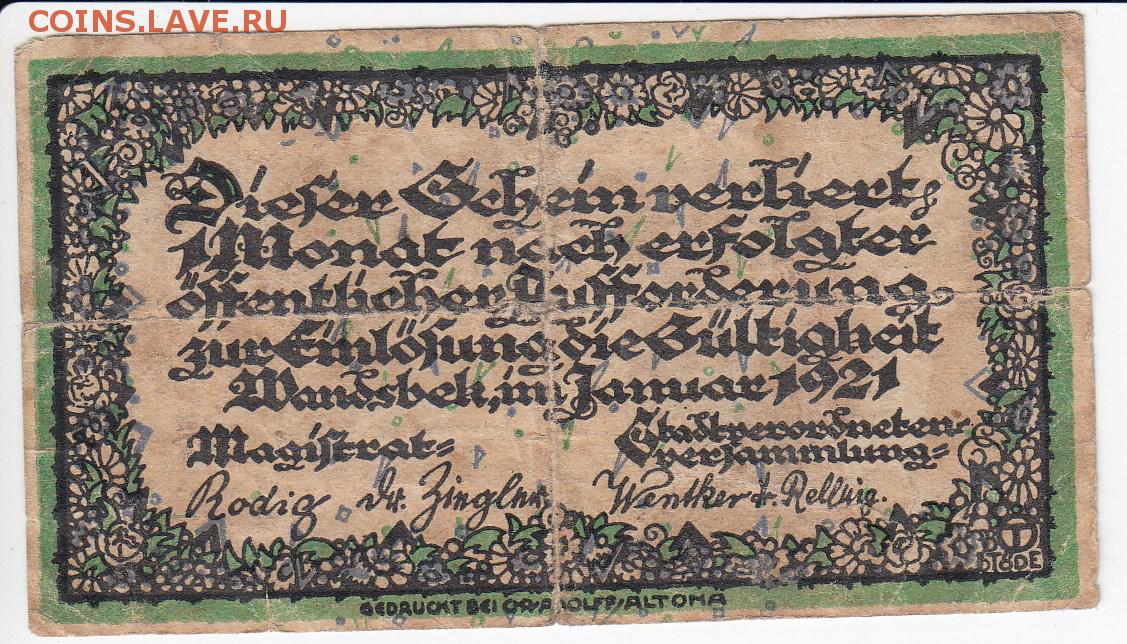 COINS.LAVE.RU
Dieser Schein verliert
1 Monat nach erfolgter
öffentlicher Aufforderung
zur Einlösung die Gültigkeit
Wandsbek, im Januar 1921
Magistrat= Stadtverordneten-
versammlung=
Rodig Dr. Ziegler Wentker Dr. Rellnig.
DTÖDE
GEDRUCKT BEI ADOLFF/ALTONA